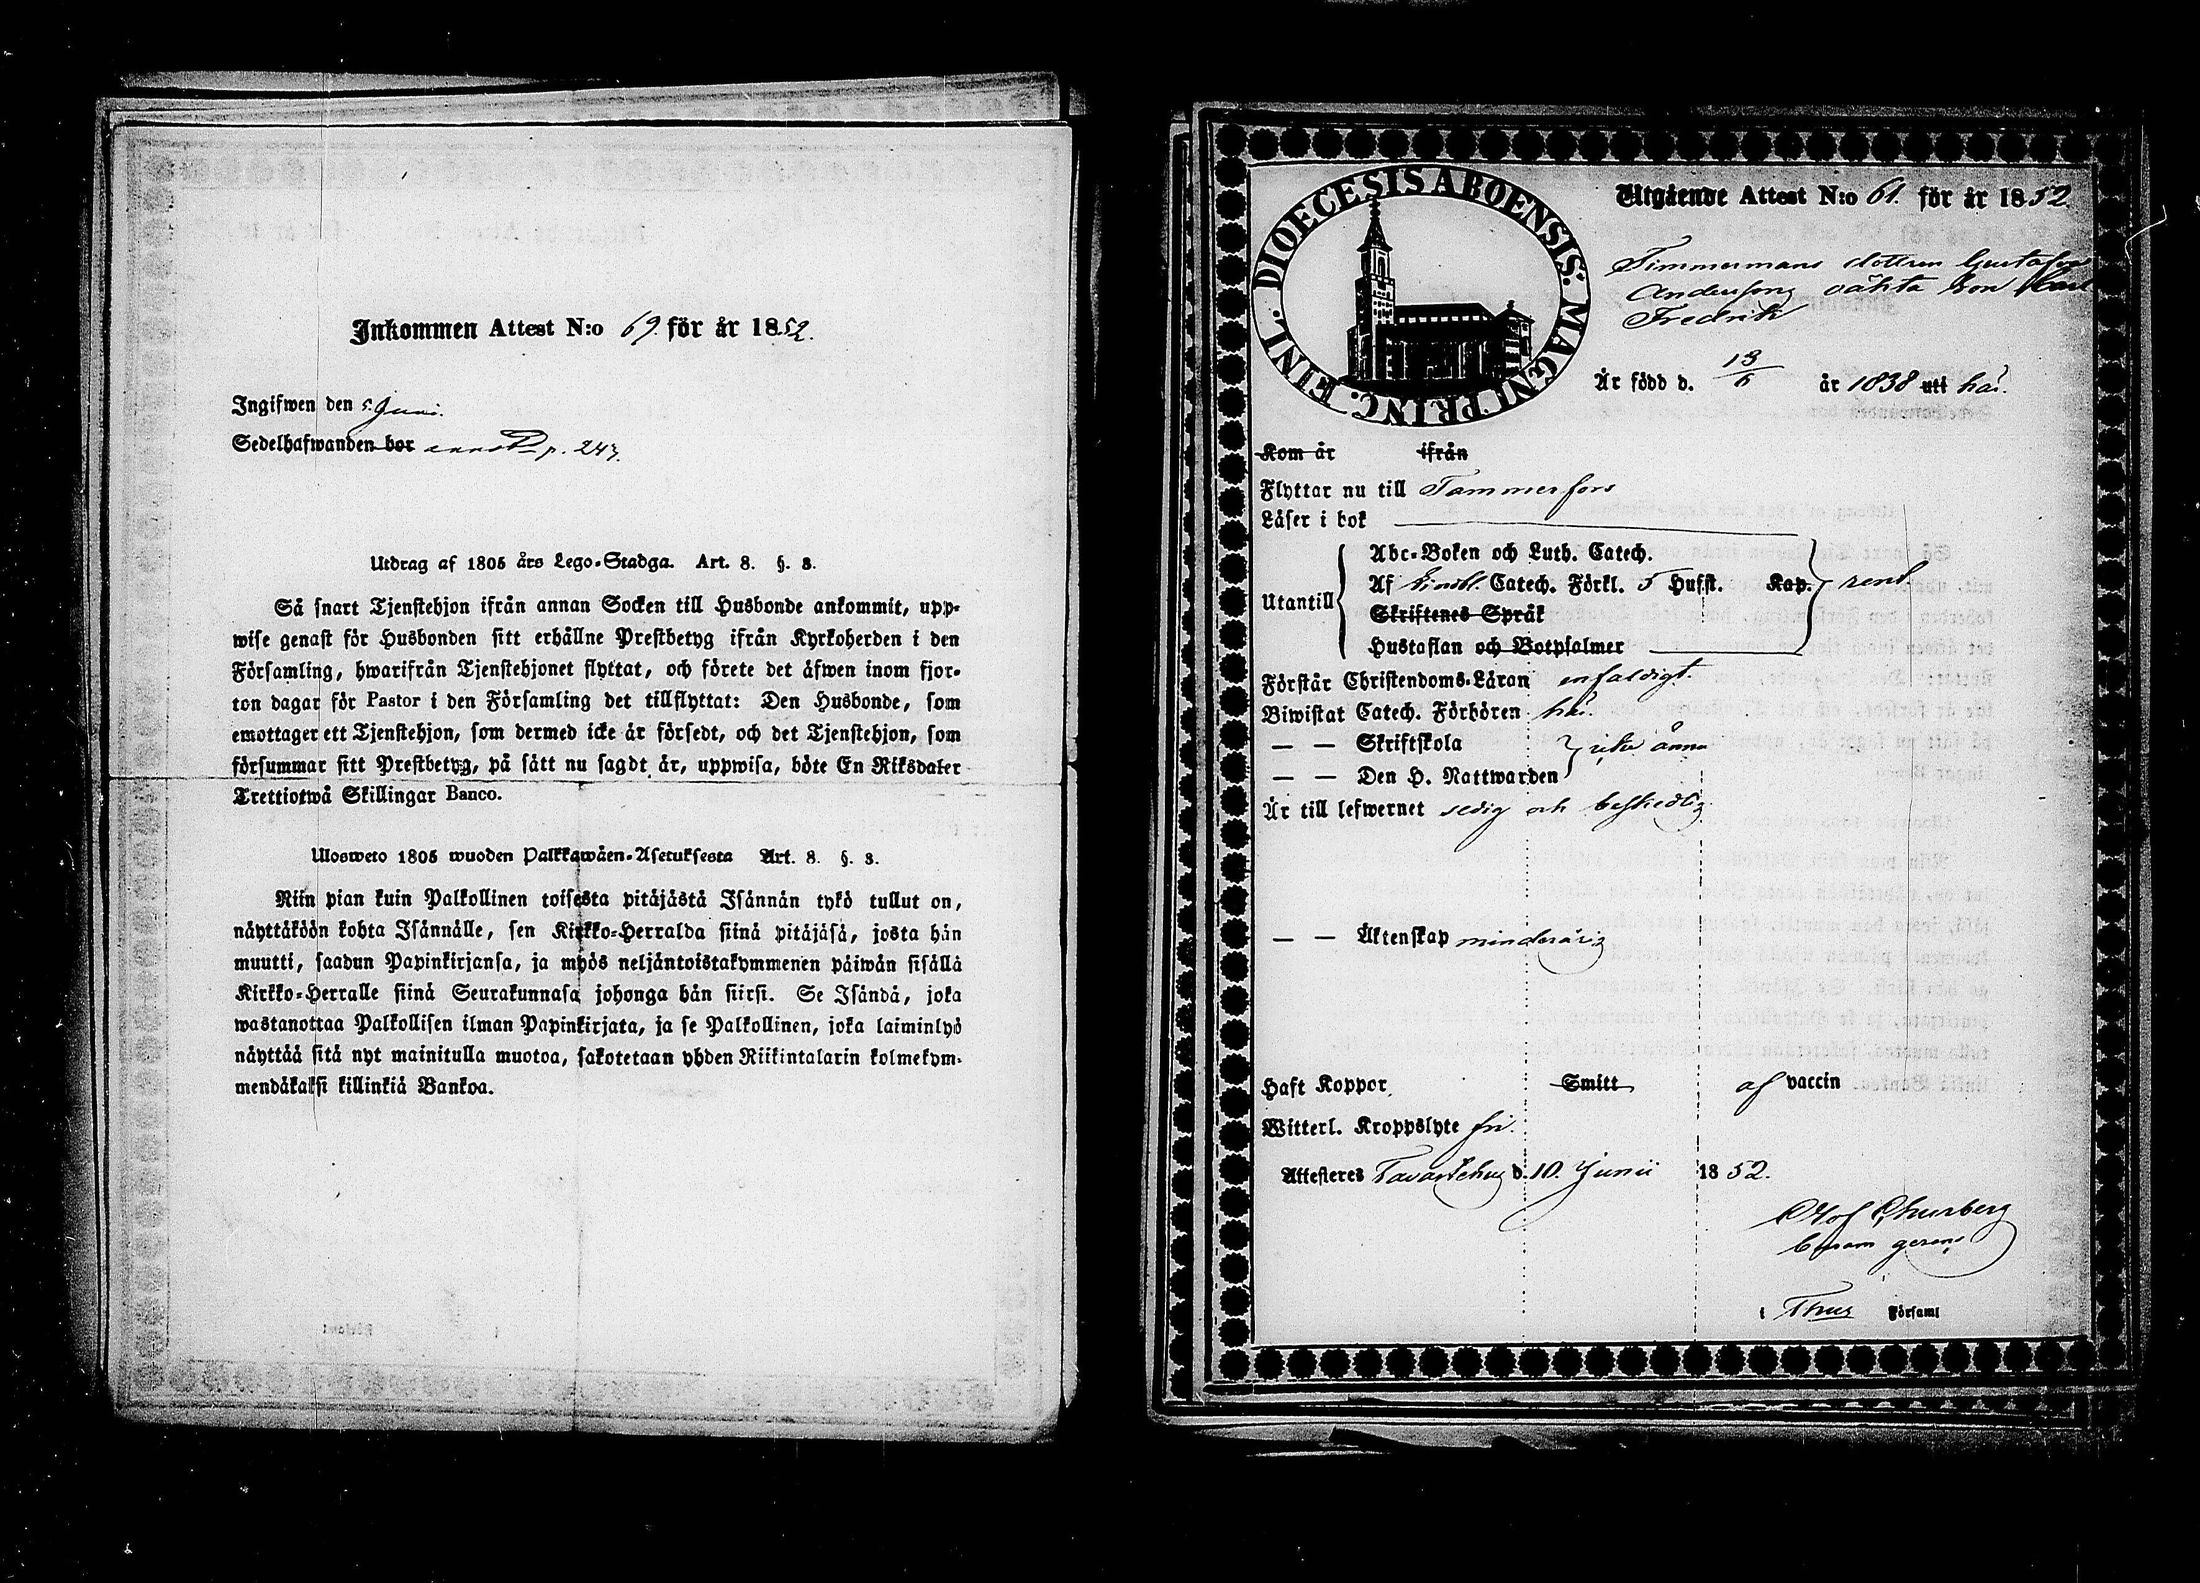 Inkommen Attest N:o 69. för år 1852.
Ingifwen den 5 Juni.
Sedelhafwanden bor p. 243.
Utdrag af 1805 års Lego-Stadga. Art. 8. §. 8.
Så snart Tjenstehjon ifrån annan Socken till Husbonde ankommit, upp-
wise genast för Husbonden sitt erhållne Prestbetyg ifrån Kyrkoherden i den
Församling, hwarifrån Tjenstehjonet flyttat, och förete det äfwen inom fjor-
ton dagar för Pastor i den Församling det tillflyttat: Den Husbonde, som
emottager ett Tjenstehjon, som dermed icke är försedt, och det Tjenstehjon, som
försummar sitt Prestbetyg, på sätt nu sagdt är, uppwisa, böte En Riksdaler
Trettiotwå Skillingar Banco.
Ulosweto 1805 wuoden Palkkawäen-Asetuksesta Art. 8. §. 8.
Niin pian kuin Palkollinen toisesta pitäjästä Isännän tykö tullut on,
näyttäköön kohta Isännälle, sen Kirkko-Herralda siinä pitäjäsä, josta hän
muutti, saadun Papinkirjansa, ja myös neljäntoistakymmenen päiwän sisällä
Kirkko-Herralle siinä Seurakunnasa johonga hän siirsi. Se Isändä, joka
wastanottaa Palkollisen ilman Papinkirjata, ja se Palkollinen, joka laiminlyö
näyttää sitä nyt mainitulla muotoa, sakotetaan yhden Riikintalarin kolmekym-
mendäkaksi killinkiä Bankoa.
DIOECESIS ABOENSIS: MAGNI PRINC. FINL.
Utgående Attest N:o 61. för år 1852
Timmermans dottren Gustafva
Andersons oäkta son Carl
Fredrik
Är född d. 13/6 år 1838 utí här.
Kom år ifrån
Flyttar nu till Tammerfors
Läser i bok
Utantill
Abc-Boken och Luth. Catech.
Af Catech. Förkl. 5 Hufst. Kap. rent
Skriftenes Språk
Hustaflan och Botpsalmer
Förstår Christendoms-Läran enfaldigt.
Biwistat Catech. Förhören här.
— — Skriftskola icke ännu
— — Den H. Nattwarden
Är till lefwernet sedig och beskedlig
— — Äktenskap minderårig
Haft Koppor Smitt af vaccin
Witterl. Kroppslyte fri.
Attesteres Tavastehus d. 10. Junii 1852.
Olof Thurberg
Curam gerens
i Thus Församl